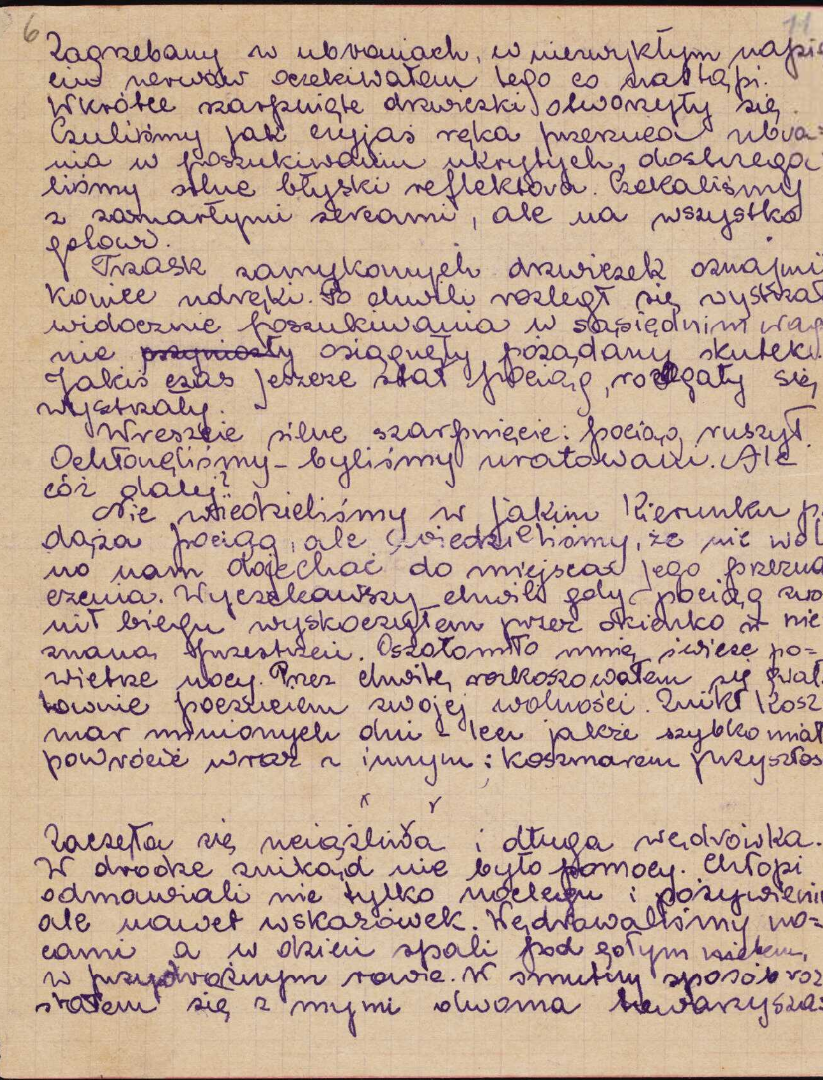 6 11
Zagrzebany w ubraniach, w niezwykłym napię
ciu nerwów oczekiwałem tego co nastąpi.
Wkrótce szarpnięte drzwiczki otworzyły się.
Czuliśmy jak czyjaś ręka przerzuca ubra=
nia w poszukiwaniu ukrytych, dostrzega
liśmy silne błyski reflektora. Czekaliśmy
z zamarłymi sercami, ale na wszystko
gotowi.
Trzask zamykanych drzwiczek oznajmi
koniec udręki. Po chwili rozległ się wystrzał
widocznie poszukiwania w sąsiednim wag
nie przyniosły osiągnęły pożądany skutek.
Jakiś czas jeszcze stał pociąg, rozlegały się
wystrzały.
Wreszcie silne szarpnięcie: pociąg ruszył.
Ochłonęliśmy – byliśmy uratowani. Ale
cóż dalej?
Nie wiedzieliśmy w jakim kierunku po
dąża pociąg, ale wiedzieliśmy, że nie wol
no nam dojechać do miejsca jego przezna
czenia. Wyczekawszy chwili gdy pociąg zwol
nił biegu wyskoczyłem przez okienko w nie
znaną przestrzeń. Oszołomiło mnie świeże po=
wietrze nocy. Przez chwilę rozkoszowałem się gwał
townie poczuciem swojej wolności. Znikł kosz
mar minionych dni – lecz jakże szybko miał
powrócić wraz z innym: koszmarem przyszłoś
x x
Zaczęła się uciążliwa i długa wędrówka.
W drodze znikąd nie było pomocy. Chłopi
odmawiali nie tylko noclegu i pożywienia
ale nawet wskazówek. Wędrowaliśmy no=
cami a w dzień spali pod gołym niebem,
w przydrożnym rowie. W smutny sposób roz
stałem się z mymi dwoma towarzysza=